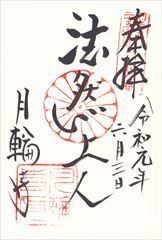 奉拝
令和元年
六月三日
法然上人
月輪寺